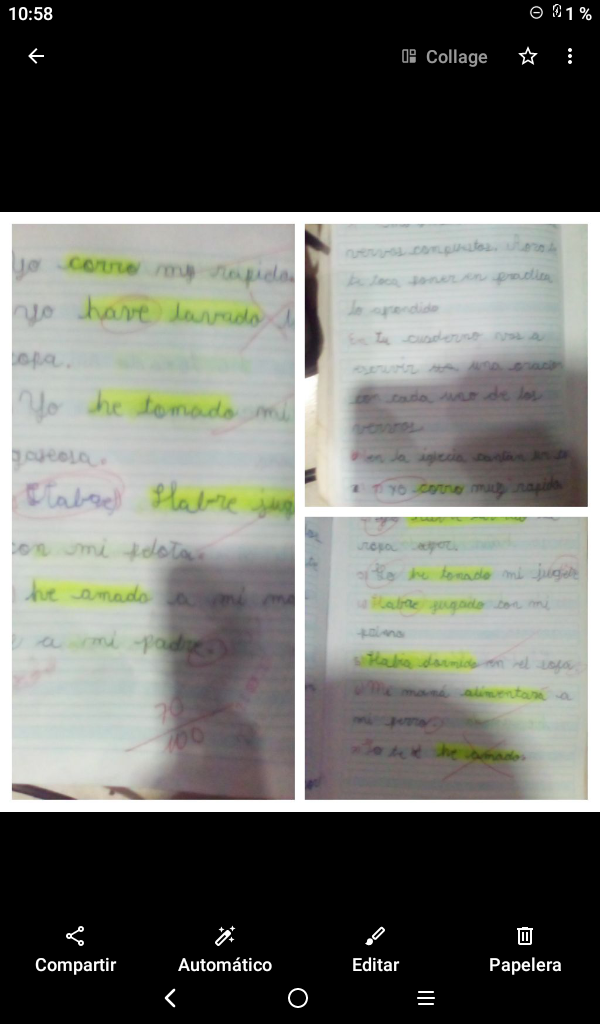 10:58
1 %
Collage
Yo corro muy rapido
yo have lavado l
ropa.
Yo he tomado mi
gaseosa.
Habre Habre jug
con mi pelota.
he amado a mi ma
e a mi padre.
70
100
vervos compuestos. Ahora
te toca poner en practica
lo aprendido
En tu cuaderno vas a
escrivir una oracion
con cada uno de los
vervos
en la iglecia cantan
yo corro muy rapido
ropa ayer.
Yo he tomado mi jugo
Habre jugado con mi
primo
Habra dormido en el sofa
Mi mamá alimentara a
mi perro
Yo he amado.
Compartir
Automático
Editar
Papelera